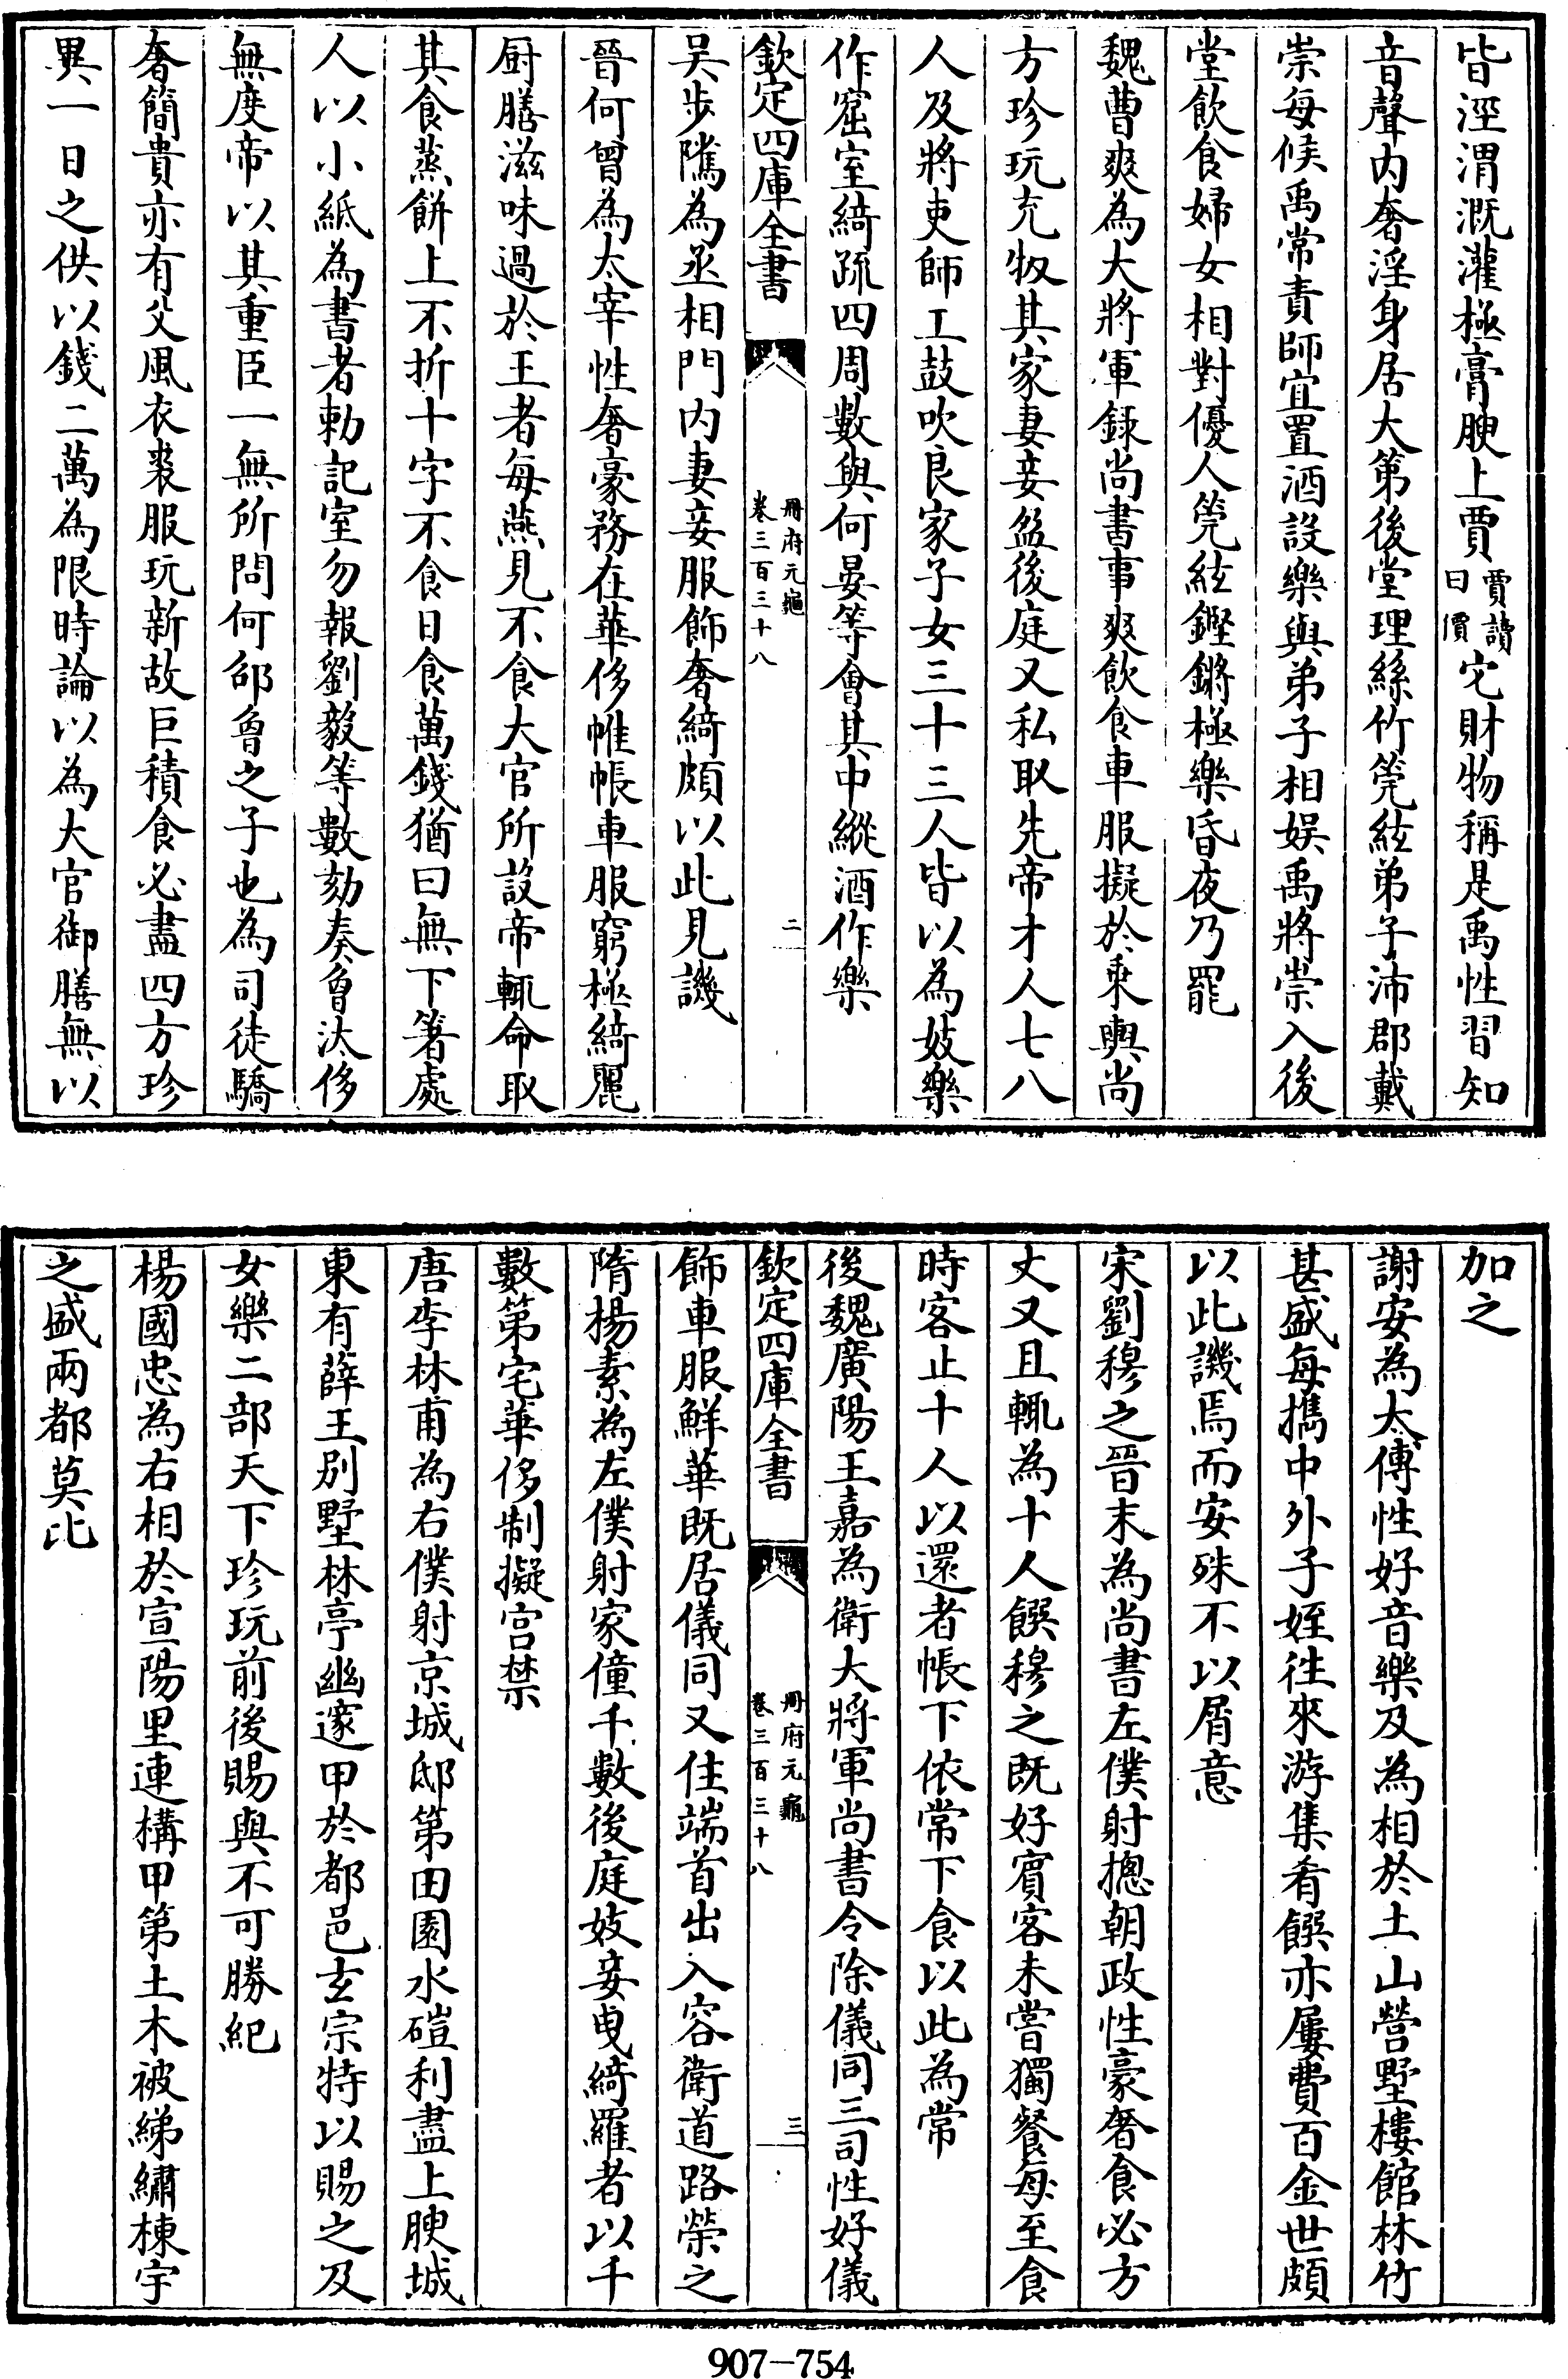 皆涇渭溉灌極膏腴上賈賈讀曰價它財物稱是禹性習知
音聲内奢淫身居大第後堂理絲竹筦絃弟子沛郡戴
崇每候禹常責師宜置酒設樂與弟子相娱禹將崇入後
堂飲食婦女相對優人筦絃鏗鏘極樂昏夜乃罷
魏曹爽為大將軍録尚書事爽飲食車服擬於乘輿尚
方珍玩充牣其家妻妾盈後庭又私取先帝才人七八
人及將吏師工鼓吹良家子女三十三人皆以為妓樂
作窟室綺疏四周數與何晏等會其中縱酒作樂
欽定四庫全書
冊府元龜
卷三百三十八
二
吴步騭為丞相門内妻妾服飾奢綺頗以此見譏
晉何曾為太宰性奢豪務在華侈帷帳車服窮極綺麗
厨膳滋味過於王者每燕見不食大官所設帝輒命取
其食蒸餅上不拆十字不食日食萬錢猶曰無下箸處
人以小紙為書者勅記室勿報劉毅等數劾奏曾汰侈
無度帝以其重臣一無所問何邵曾之子也為司徒驕
奢簡貴亦有父風衣裘服玩新故巨積食必盡四方珍
異一日之供以錢二萬為限時論以為大官御膳無以
加之
謝安為太傅性好音樂及為相於土山營墅樓館林竹
甚盛每擕中外子姪往來游集肴饌亦屢費百金世頗
以此譏焉而安殊不以屑意
宋劉穆之晉末為尚書左僕射摠朝政性豪奢食必方
丈又且輒為十人饌穆之既好賓客未嘗獨餐每至食
時客止十人以還者帳下依常下食以此為常
後魏廣陽王嘉為衛大將軍尚書令除儀同三司性好儀
欽定四庫全書
冊府元龜
卷三百三十八
三
飾車服鮮華既居儀同又任端首出入容衛道路榮之
隋楊素為左僕射家僮千數後庭妓妾曳綺羅者以千
數第宅華侈制擬宫禁
唐李林甫為右僕射京城邸第田園水磑利盡上腴城
東有薛王别墅林亭幽邃甲於都邑玄宗特以賜之及
女樂二部天下珍玩前後賜與不可勝紀
楊國忠為右相於宣陽里連構甲第土木被綈繡棟宇
之盛兩都莫比
907-754